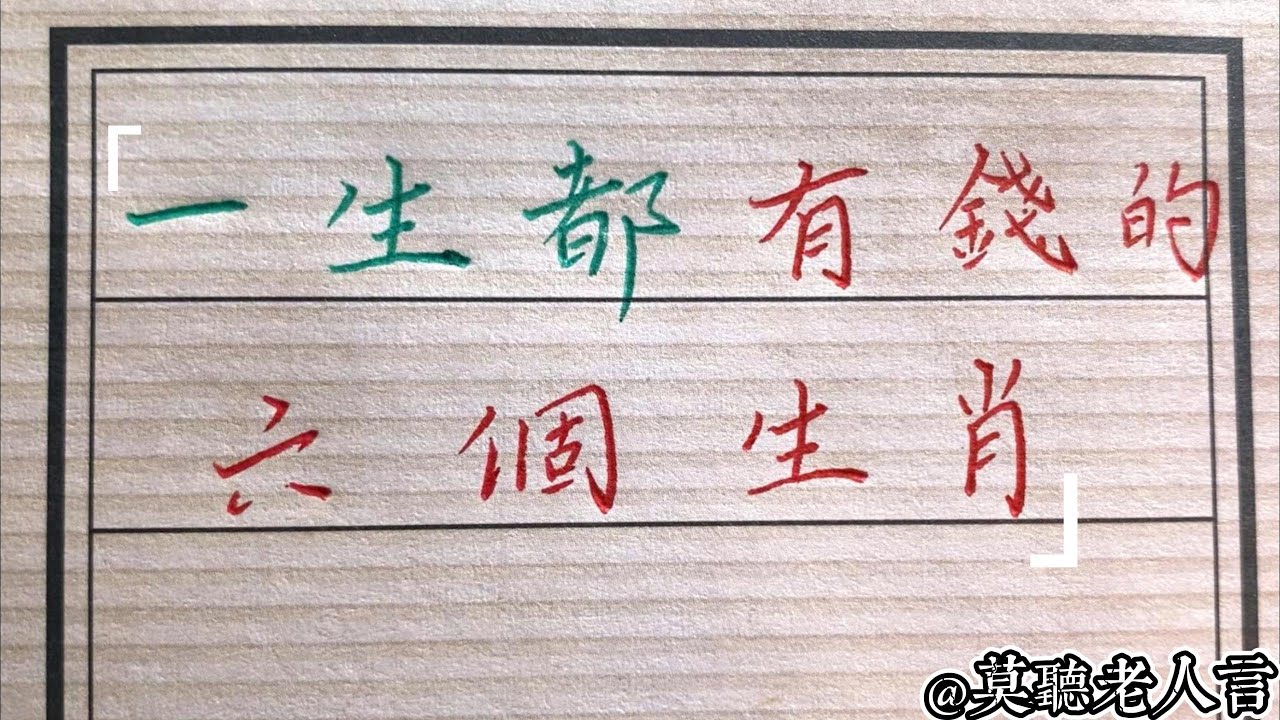 「一生都有錢的
六個生肖」
@莫聽老人言